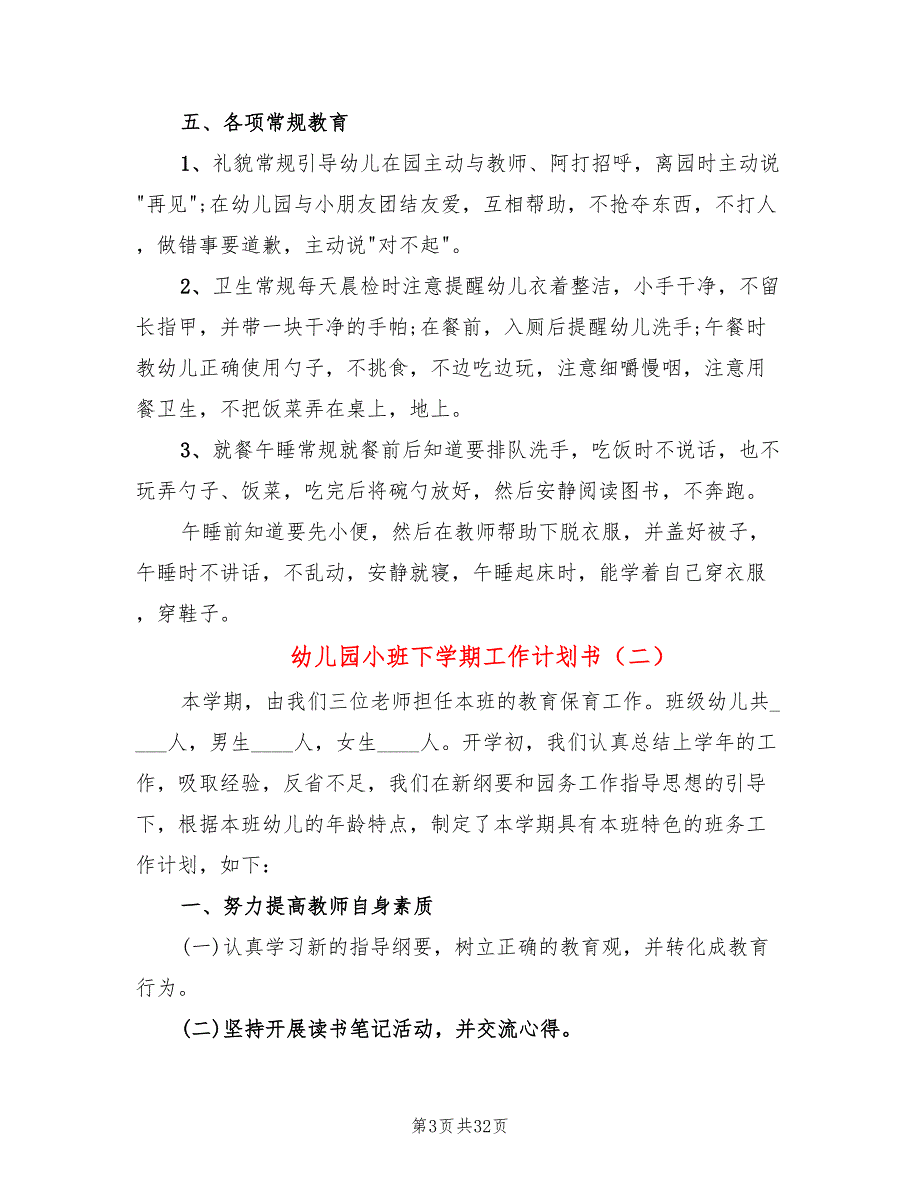 五、各项常规教育
1、礼貌常规引导幼儿在园主动与教师、阿打招呼，离园时主动说
"再见";在幼儿园与小朋友团结友爱，互相帮助，不抢夺东西，不打人
，做错事要道歉，主动说"对不起"。
2、卫生常规每天晨检时注意提醒幼儿衣着整洁，小手干净，不留
长指甲，并带一块干净的手帕;在餐前，入厕后提醒幼儿洗手;午餐时
教幼儿正确使用勺子，不挑食，不边吃边玩，注意细嚼慢咽，注意用
餐卫生，不把饭菜弄在桌上，地上。
3、就餐午睡常规就餐前后知道要排队洗手，吃饭时不说话，也不
玩弄勺子、饭菜，吃完后将碗勺放好，然后安静阅读图书，不奔跑。
午睡前知道要先小便，然后在教师帮助下脱衣服，并盖好被子，
午睡时不讲话，不乱动，安静就寝，午睡起床时，能学着自己穿衣服
，穿鞋子。
幼儿园小班下学期工作计划书（二）
本学期，由我们三位老师担任本班的教育保育工作。班级幼儿共_
___人，男生____人，女生____人。开学初，我们认真总结上学年的工
作，吸取经验，反省不足，我们在新纲要和园务工作指导思想的引导
下，根据本班幼儿的年龄特点，制定了本学期具有本班特色的班务工
作计划，如下：
一、努力提高教师自身素质
(一)认真学习新的指导纲要，树立正确的教育观，并转化成教育
行为。
(二)坚持开展读书笔记活动，并交流心得。
第3页共32页